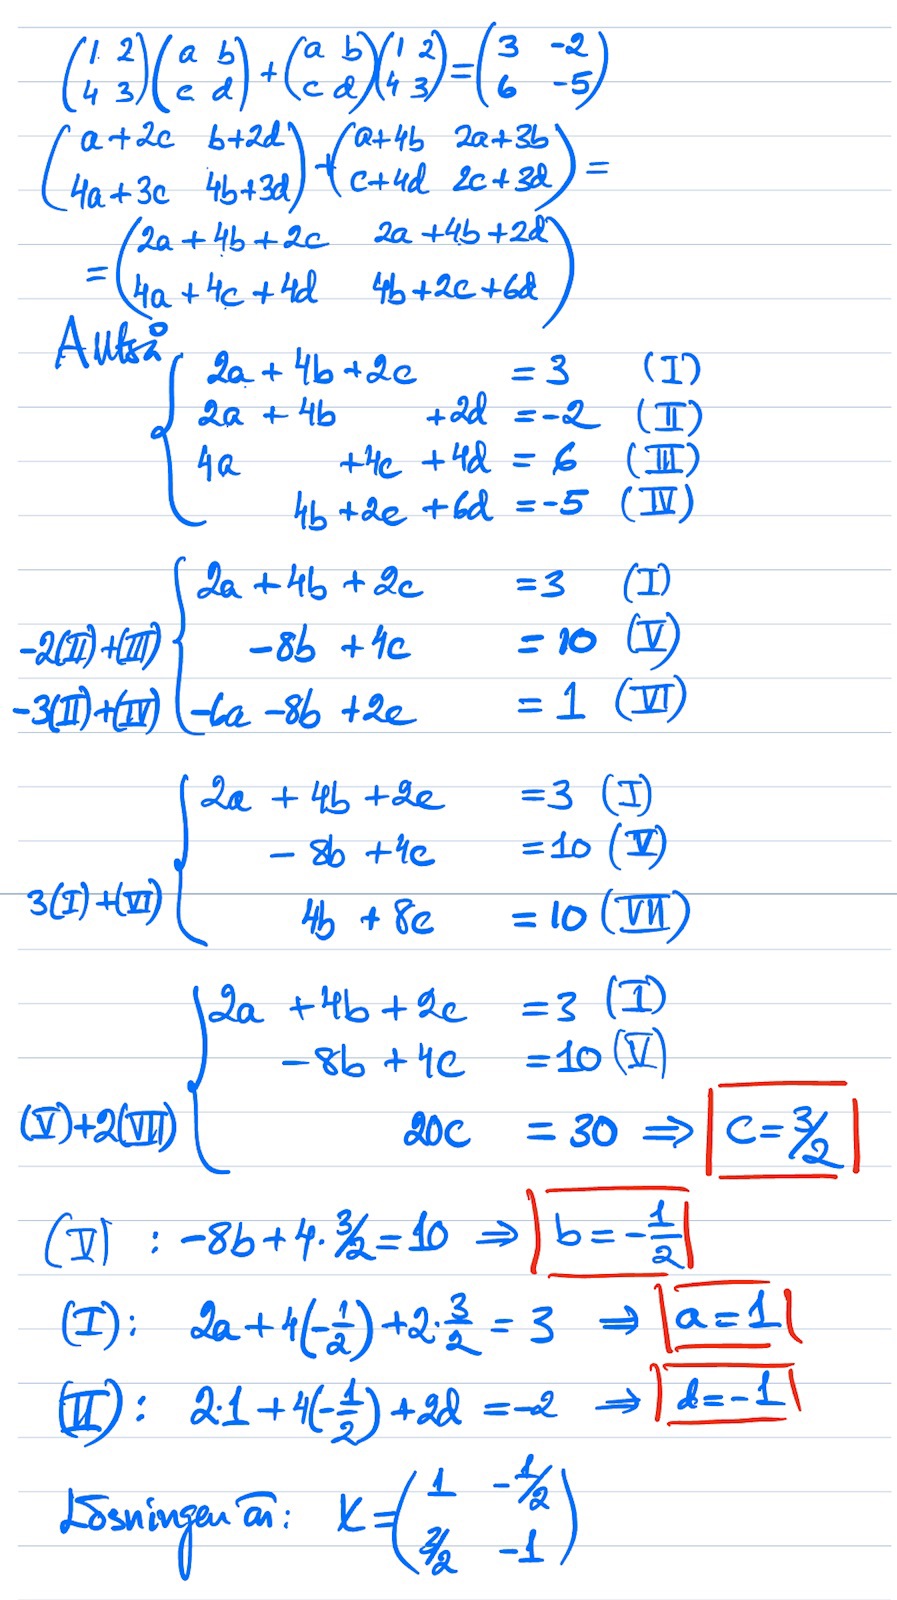 (1 2; 4 3)(a b; c d) + (a b; c d)(1 2; 4 3) = (3 -2; 6 -5)
(a+2c b+2d; 4a+3c 4b+3d) + (a+4b 2a+3b; c+4d 2c+3d) =
= (2a+4b+2c 2a+4b+2d; 4a+4c+4d 4b+2c+6d)
2a + 4b + 2c = 3 (I)
2a + 4b + 2d = -2 (II)
4a + 4c + 4d = 6 (III)
4b + 2c + 6d = -5 (IV)
2a + 4b + 2c = 3 (I)
-2(II)+(III) -8b + 4c = 10 (V)
-3(II)+(IV) -6a -8b +2c = 1 (VI)
2a + 4b + 2c = 3 (I)
- 8b + 4c = 10 (V)
3(I)+(VI) 4b + 8c = 10 (VII)
2a + 4b + 2c = 3 (I)
-8b + 4c = 10 (V)
(V)+2(VII) 20c = 30 ⇒ c = 3/2
(V) : -8b + 4·3/2 = 10 ⇒ b = -1/2
(I): 2a + 4(-1/2) + 2·3/2 = 3 ⇒ a = 1
(II): 2·1 + 4(-1/2) + 2d = -2 ⇒ d = -1
Lösningen är: X = (1 -1/2; 3/2 -1)